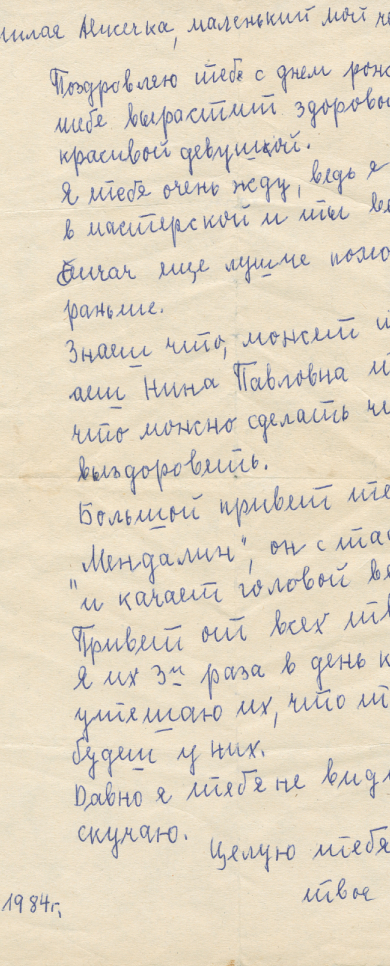 милая Алисечка, маленький мой че
Поздравляю тебя с днем рож
тебе вырастит здоровой
красивой девушкой.
я тебя очень жду, ведь я
в мастерской и ты ве
сичас еще лучше помо
раньше.
Знаеш что, может и
аеш Нина Павловна и
что можно сделать чт
выздороветь.
Большой привет те
"Мендалин", он с та
"и качает головой ве
Привет от всех тв
я их 3м раза в день к
утешаю их, что т
будеш у них.
Давно я тебя не виде
скучаю.
Целую тебя
твое
1984г.